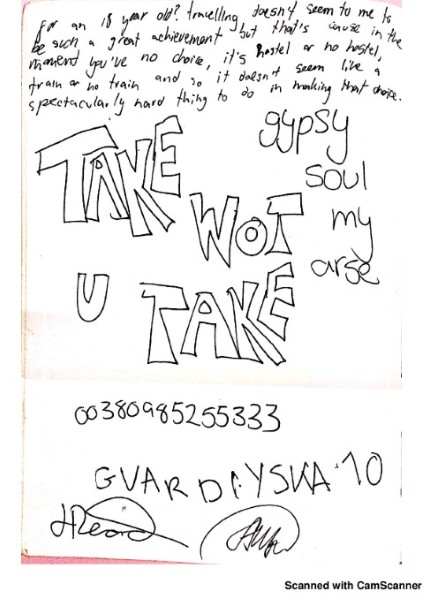 for an 18 year old? travelling doesn't seem to me to
be such a great achievement but that's cause in the
moment you've no choice, it's hostel or no hostel,
train or no train and so it doesn't seem like a
spectacularly hard thing to do in making that choice.
TAKE
WOT
U TAKE
gypsy
soul
my
arse
00380985255333
GVARDIYSKA 10
Scanned with CamScanner